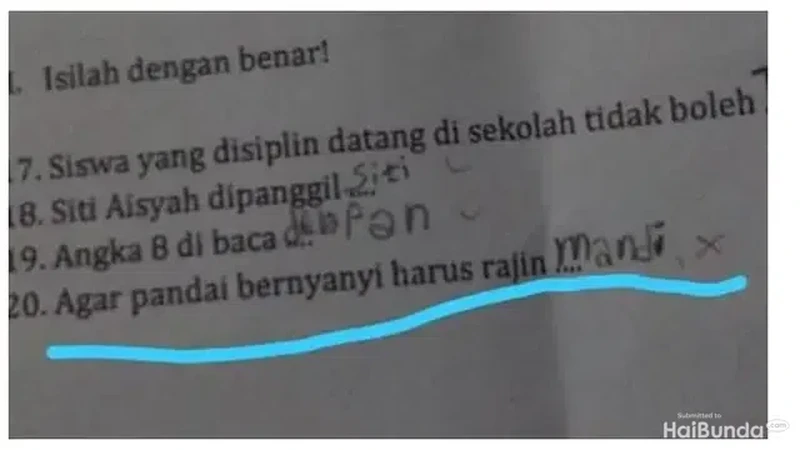 I. Isilah dengan benar!
17. Siswa yang disiplin datang di sekolah tidak boleh
18. Siti Aisyah dipanggil .... Siti
19. Angka 8 di baca ... delapan
20. Agar pandai bernyanyi harus rajin .... mandi
Submitted to
HaiBunda.com